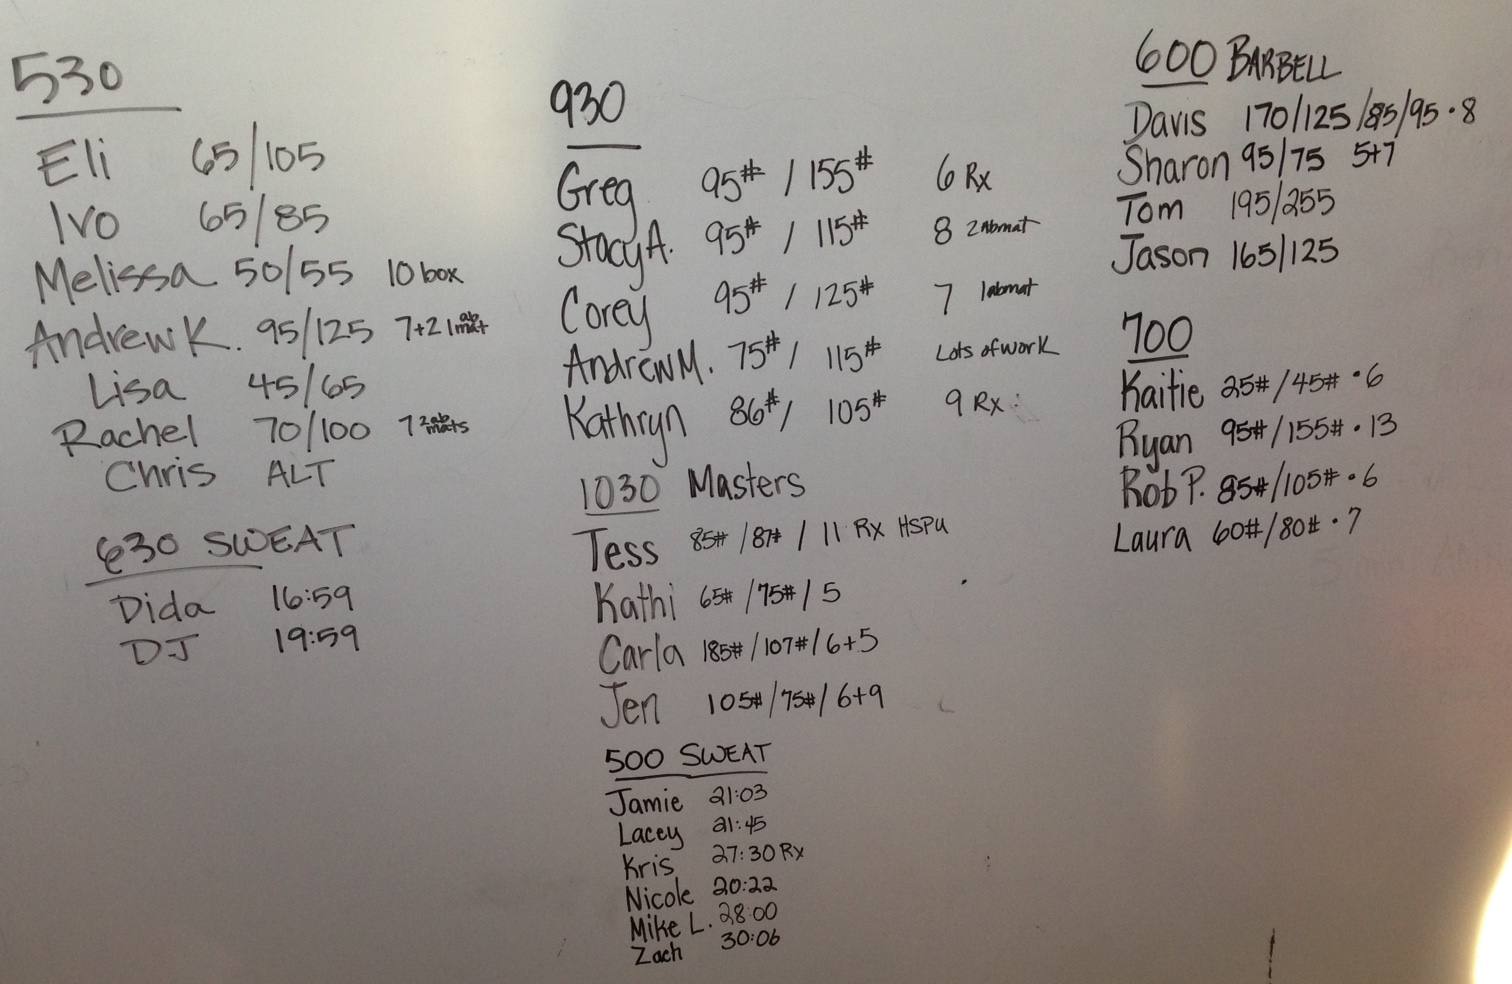 530
Eli 65/105
Ivo 65/85
Melissa 50/55 10 box
Andrew K. 95/125 7+2 1 ab mat
Lisa 45/65
Rachel 70/100 7 2 ab mats
Chris ALT
630 SWEAT
Dida 16:59
DJ 19:59
930
Greg 95# / 155# 6 Rx
Stacy A. 95# / 115# 8 2 abmat
Corey 95# / 125# 7 1 abmat
Andrew M. 75# / 115# Lots of work
Kathryn 86# / 105# 9 Rx
1030 Masters
Tess 85# / 87# / 11 Rx HSPU
Kathi 65# / 75# / 5
Carla 185# / 107# / 6+5
Jen 105# / 75# / 6+9
500 SWEAT
Jamie 21:03
Lacey 21:45
Kris 27:30 Rx
Nicole 20:22
Mike L. 28:00
Zach 30:06
600 BARBELL
Davis 170/125/85/95 • 8
Sharon 95/75 5+7
Tom 195/255
Jason 165/125
700
Kaitie 25# / 45# • 6
Ryan 95# / 155# • 13
Rob P. 85# / 105# • 6
Laura 60# / 80# • 7